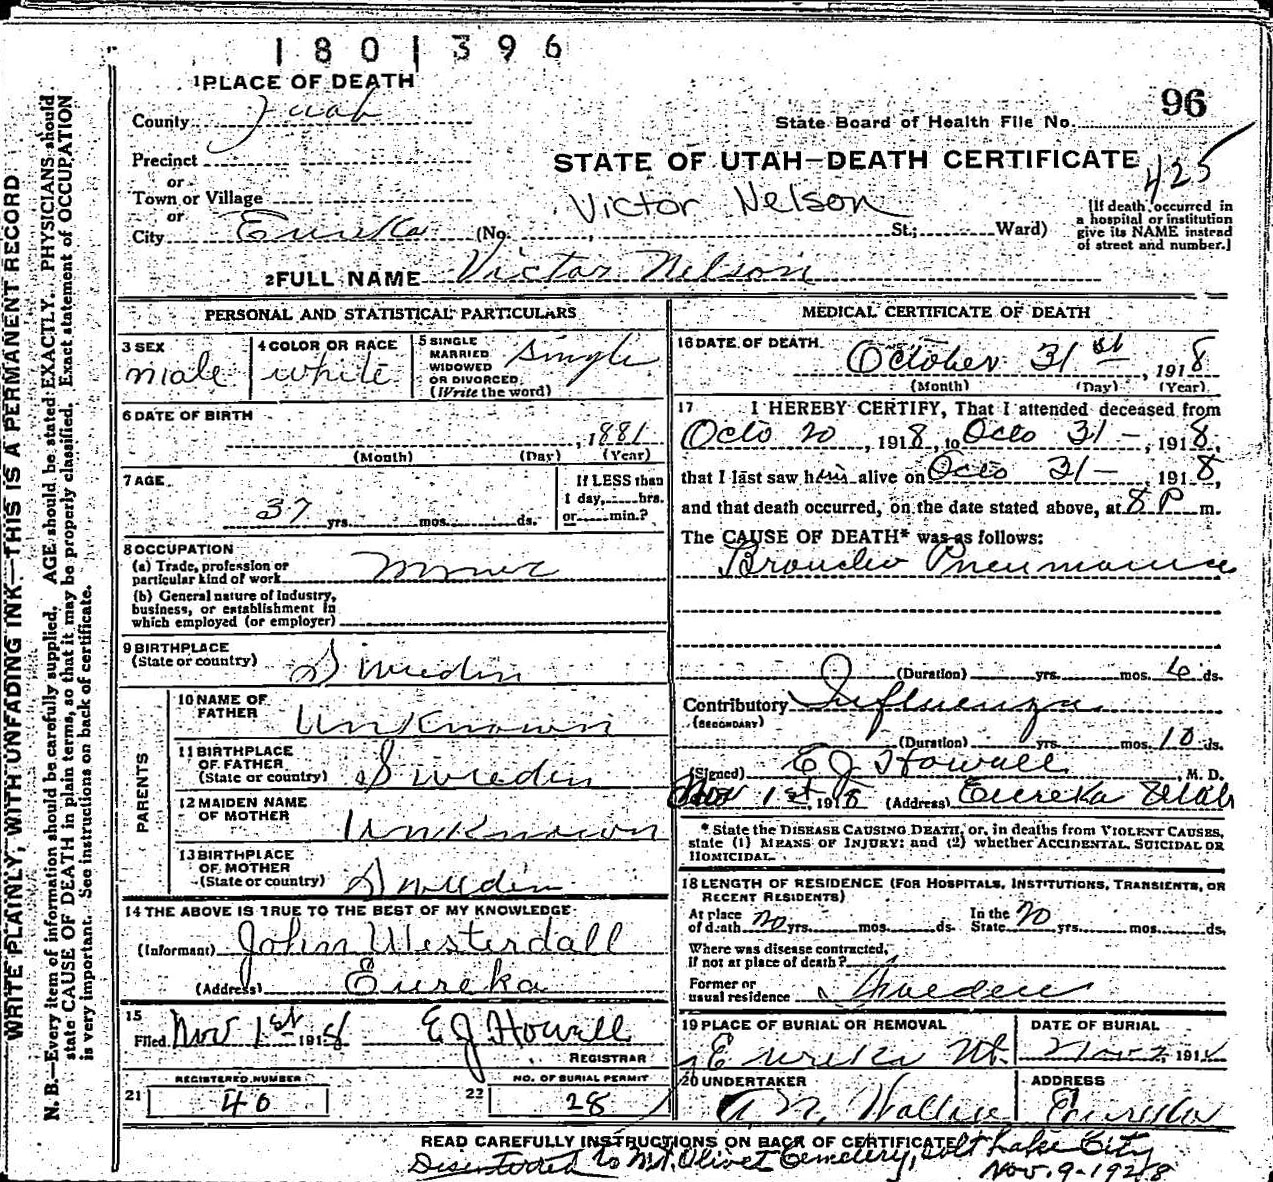 1801396
1 PLACE OF DEATH
County Juab
96
State Board of Health File No.
Precinct
STATE OF UTAH—DEATH CERTIFICATE
425
or
Town or Village
Victor Nelson
or
City Eureka (No. , St.; Ward)
[If death occurred in
a hospital or institution
give its NAME instead
of street and number.]
2 FULL NAME Victor Nelson
PERSONAL AND STATISTICAL PARTICULARS
3 SEX male
4 COLOR OR RACE white
5 SINGLE
MARRIED
WIDOWED
OR DIVORCED
(Write the word) single
6 DATE OF BIRTH
, 1881
(Month) (Day) (Year)
7 AGE
37 yrs. mos. ds.
If LESS than
1 day, hrs.
or min.?
8 OCCUPATION
(a) Trade, profession or
particular kind of work miner
(b) General nature of industry,
business, or establishment in
which employed (or employer)
9 BIRTHPLACE
(State or country) Sweden
PARENTS
10 NAME OF
FATHER Unknown
11 BIRTHPLACE
OF FATHER
(State or country) Sweden
12 MAIDEN NAME
OF MOTHER Unknown
13 BIRTHPLACE
OF MOTHER
(State or country) Sweden
14 THE ABOVE IS TRUE TO THE BEST OF MY KNOWLEDGE:
(Informant) John Westerdall
(Address) Eureka
15
Filed Nov 1st 1918 E J Howell
REGISTRAR
REGISTERED NUMBER
21 40
NO. OF BURIAL PERMIT
22 28
MEDICAL CERTIFICATE OF DEATH
16 DATE OF DEATH
October 31st, 1918
(Month) (Day) (Year)
17 I HEREBY CERTIFY, That I attended deceased from
Octo 20, 1918, to Octo 31—, 1918,
that I last saw him alive on Octo 31—, 1918,
and that death occurred, on the date stated above, at 8 P m.
The CAUSE OF DEATH* was as follows:
Broncho Pneumonia
(Duration) yrs. mos. 6 ds.
Contributory Influenza
(SECONDARY)
(Duration) yrs. mos. 10 ds.
(Signed) E J Howell, M. D.
Nov 1st, 1918 (Address) Eureka Utah
* State the DISEASE CAUSING DEATH, or, in deaths from VIOLENT CAUSES,
state (1) MEANS OF INJURY; and (2) whether ACCIDENTAL, SUICIDAL OR
HOMICIDAL.
18 LENGTH OF RESIDENCE (FOR HOSPITALS, INSTITUTIONS, TRANSIENTS, OR
RECENT RESIDENTS)
At place
of death 20 yrs. mos. ds.
In the
State 20 yrs. mos. ds.
Where was disease contracted,
If not at place of death?
Former or
usual residence Sweden
19 PLACE OF BURIAL OR REMOVAL
Eureka Ut.
DATE OF BURIAL
Nov 2, 1918
20 UNDERTAKER
A. N. Wallace
ADDRESS
Eureka
READ CAREFULLY INSTRUCTIONS ON BACK OF CERTIFICATE
Disentered to Mt. Olivet Cemetery, Salt Lake City
Nov. 9 - 1928
WRITE PLAINLY, WITH UNFADING INK—THIS IS A PERMANENT RECORD
N. B.—Every item of information should be carefully supplied. AGE should be stated EXACTLY. PHYSICIANS should
state CAUSE OF DEATH in plain terms, so that it may be properly classified. Exact statement of OCCUPATION
is very important. See instructions on back of certificate.